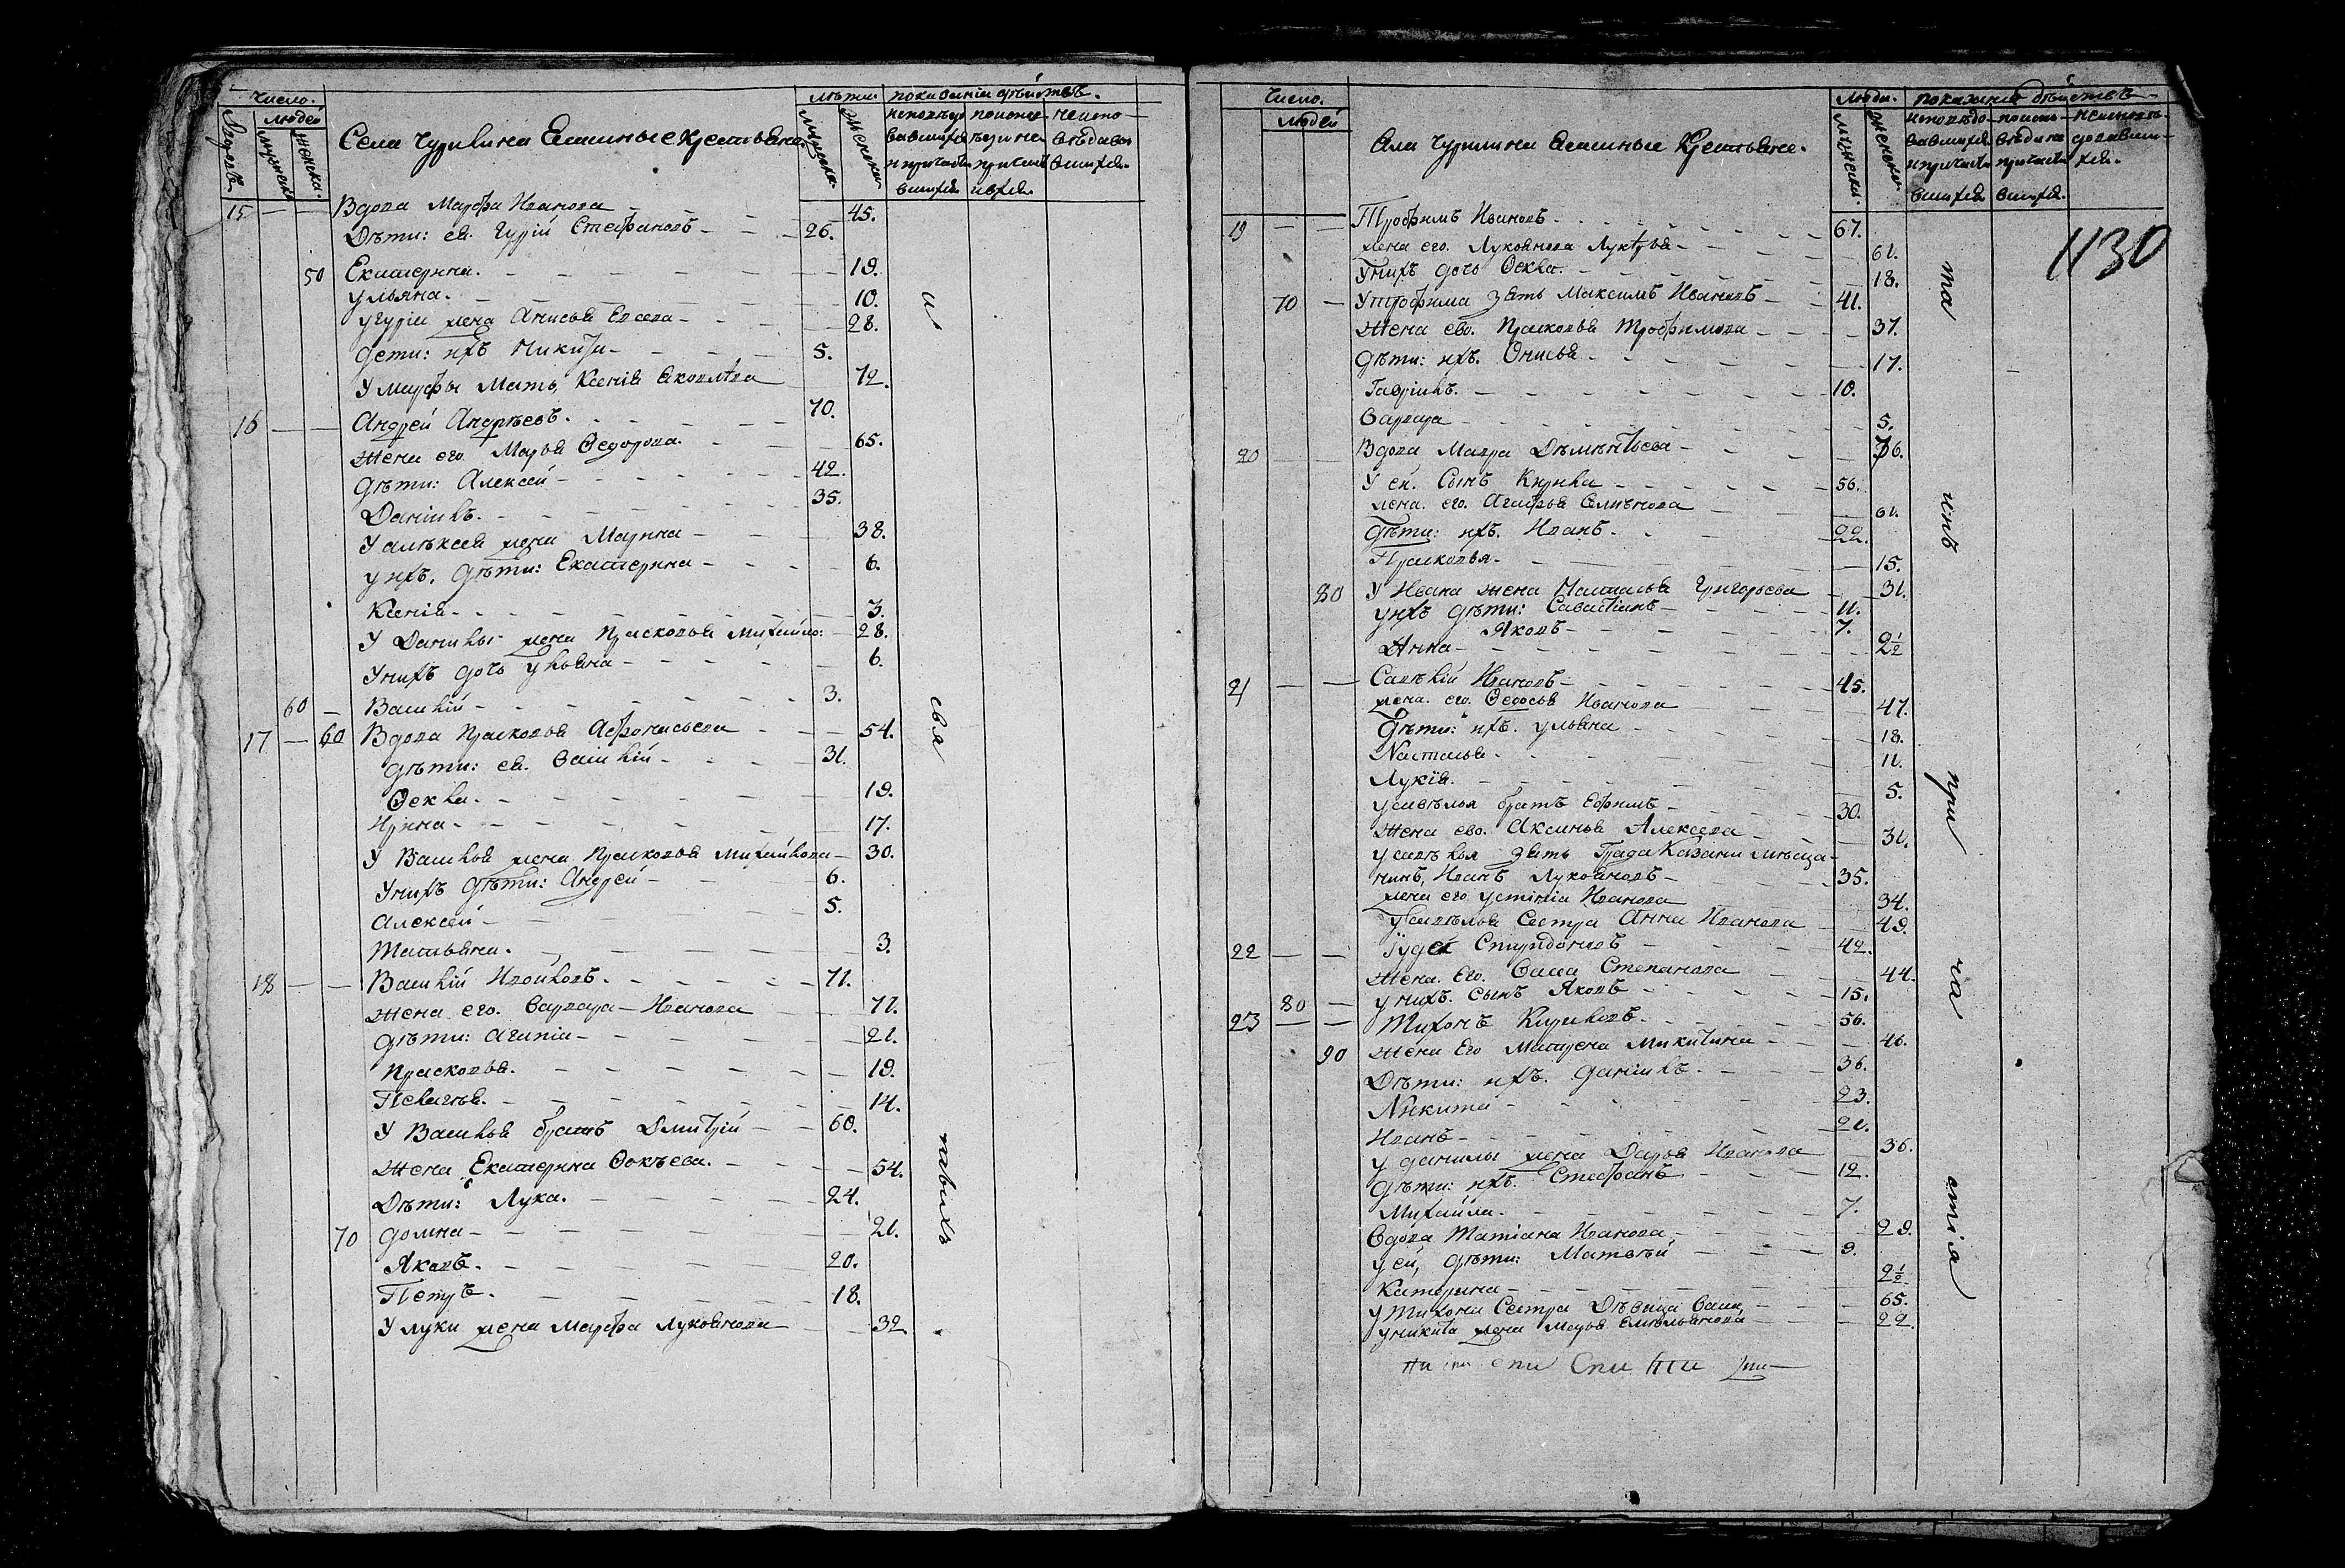 число.
людей
Дворовъ
мужеска
женска.
Села Чурилина Ясашные крестьяне.
лѣты.
мужеска
женска
показаніи дѣйствъ.
исповѣдо
вавшихся
и причаст
вшихся
исповѣ
неиспо
вѣдавав
шихся.
15 Вдова Марфа Иванова 45.
Дѣти: ея. Гурій Стефановъ 26.
50 Екатерина. 19.
Ульяна. 10.
У Гурія жена Анисья 28.
Дети: ихъ Никита 5.
У Марфы Мать, Ксенія Яковлѣва 72.
16 Андрей Андрѣевъ. 70.
Жена его Марья Ѳедорова. 65.
Дѣти: Алексей 42.
Данилъ. 35.
У Алѣксея жена Марина 38.
у ихъ. Дѣти: Екатерина 6.
Ксенія 3.
У Данилы жена Прасковья Михайло: 28.
У нихъ дочь Ульяна 6.
60 Василій 3.
17 60 Вдова Прасковья Афонасьева 54.
Дѣти: ея. Василій 31.
Ѳекла. 19.
Ирина 17.
У Василья жена Прасковья Михайлова 30.
У нихъ Дѣти: Андрей 6.
Алексей 5.
Татьяна. 3.
18 Василій 71.
Жена его. Варвара Иванова 71.
Дѣти: Агапіа 21.
Прасковья. 19.
Пелагья. 14.
У Василья братъ Дмитрій 60.
Жена Екатерина Ѳокѣева. 54.
Дѣти: Лука. 24.
70 Домна 21.
Яковъ. 20.
Петръ. 18.
У Луки жена Марфа Лукоянова 32.
и
свя
тыхъ
число.
людей
Села Чурилина Ясашные Крестьяне.
Люди.
мужска.
женска.
показаніи дѣйствъ
исповѣдо
вавшихся
и причаст
вшихся
неисповѣ
довавши
хся.
1130
19 Трофимъ Ивановъ. 67.
жена его. Лукоянова 61.
У нихъ дочь Ѳекла. 18.
70 У Трофима зять Максимъ Ивановъ 41.
Жена ево. Прасковья Трофимова 37.
Дѣти: ихъ. Онисья 17.
Гаврилъ. 10.
Варвара 5.
20 Вдова Мавра Дѣмѣнтьева 76.
У ея. Сынъ Кирила 56.
жена. его. Агафья 61.
Дѣти: ихъ. Иванъ. 22.
Прасковья. 15.
80 У Ивана жена Наталья Григорьева 31.
у ихъ дѣти: Савастіанъ 11.
Яковъ 7.
Анна 2½
21 Савѣлій Ивановъ 45.
жена. его. Ѳедосья Иванова 47.
Дѣти: ихъ. Ульяна 18.
Наталья. 11.
Лукія. 5.
У Савѣлья братъ Ефимъ 30.
Жена ево. Аксинья Алексеева 31.
У Савѣлья зять Града Казани мѣща-
нинъ, Иванъ Лукояновъ 35.
жена его Устиніа Иванова 34.
У Савѣлья Сестра Анна Иванова 49.
22 Іуда Спиридоновъ 42.
Жена. Его. Васса Степанова 44.
80 У нихъ. сынъ Яковъ 15.
23 Тихонъ Кириловъ. 56.
90 Жена Его Матрена Микитина 46.
Дѣти: ихъ. Данилъ. 36.
Никита 23.
Иванъ 21.
У Данилы жена Дарья Иванова 36.
Дѣти: ихъ. Стефанъ 12.
Михайла. 7.
Вдова Татіана Иванова 29.
У ей, дѣти: Матвѣй 9.
Катерина 2½.
У Тихона Сестра Дѣвица Васса, 65.
У Никиты жена Марья Емельянова 22.
та
инъ
при
ча
стія